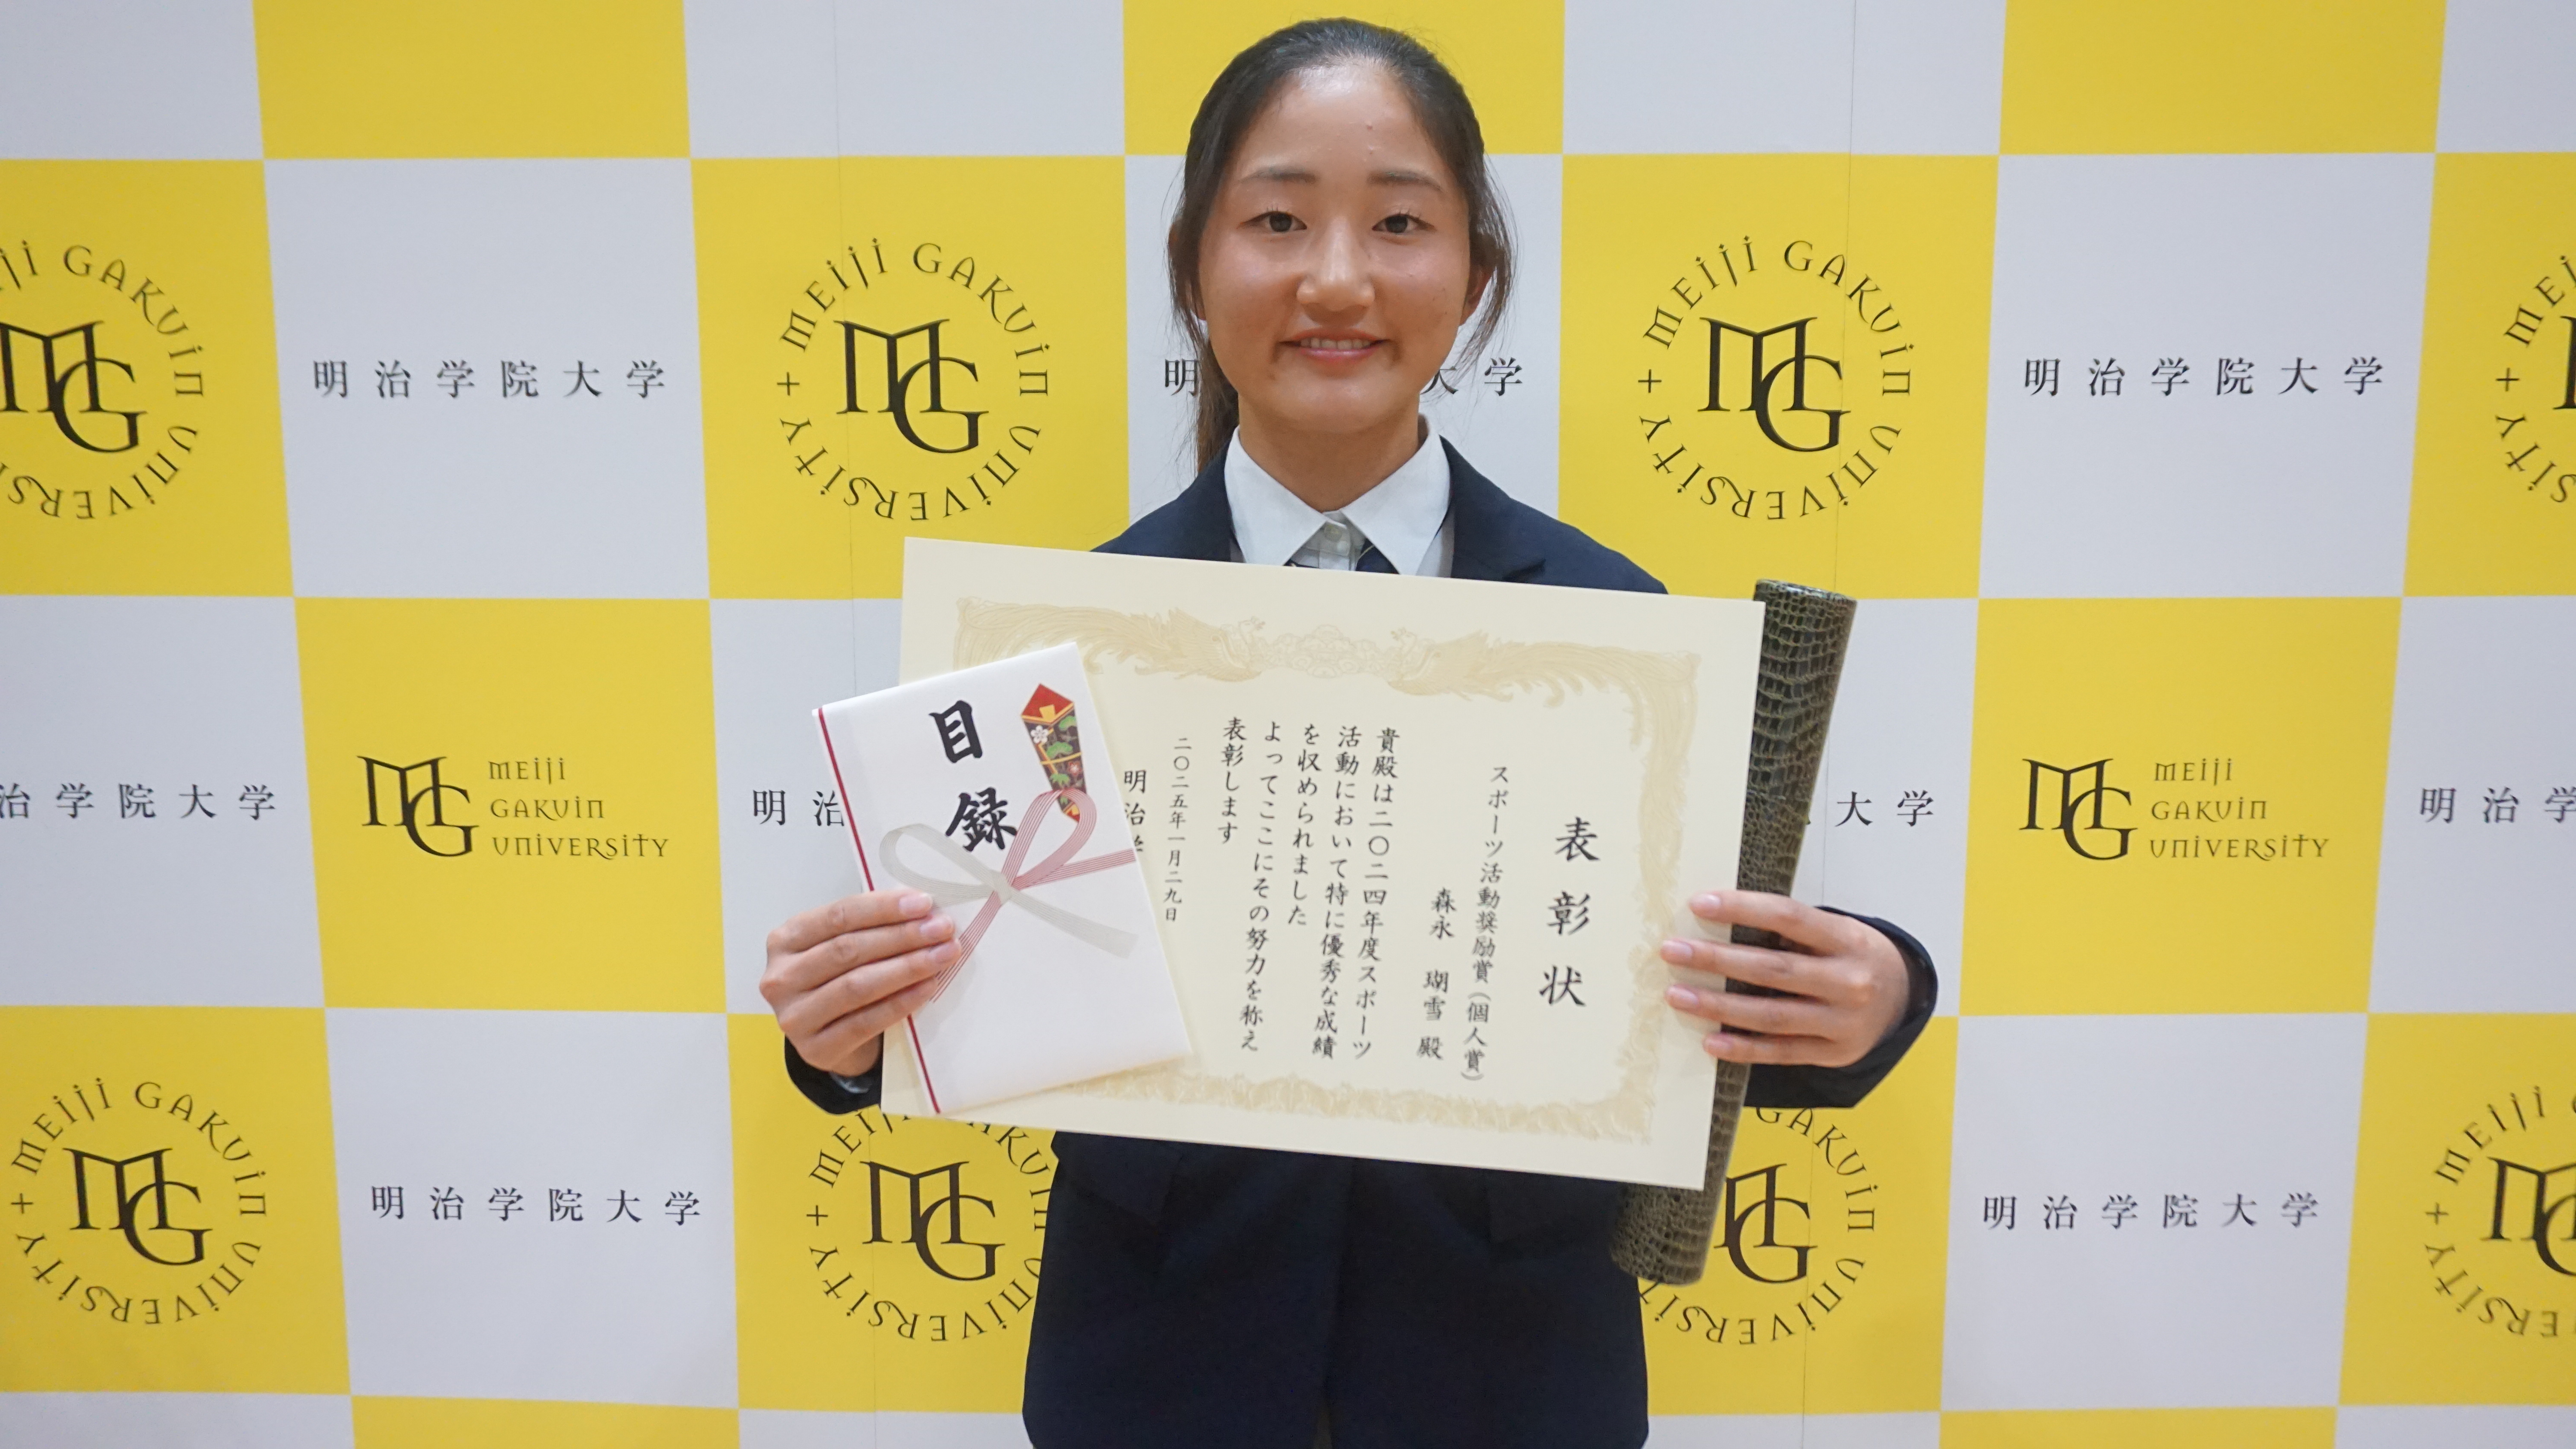 表彰状
スポーツ活動奨励賞（個人賞）
森永 瑚雪 殿
貴殿は二〇二四年度スポーツ
活動において特に優秀な成績
を収められました
よってここにその努力を称え
表彰します
二〇二五年一月二九日
明治学
目録
MEIJI GAKUIN UNIVERSITY
MG
明治学院大学
MEIJI GAKUIN UNIVERSITY
MG
明
大学
MEIJI GAKUIN UNIVERSITY
MG
明治学院大学
治学院大学
MG
MEIJI
GAKUIN
UNIVERSITY
明治
大学
MG
MEIJI
GAKUIN
UNIVERSITY
明治学
MEIJI GAKUIN UNIVERSITY
MG
明治学院大学
MEIJI GAKUIN UNIVERSITY
MG
GAKUIN UNIVERSITY
MG
明治学院大学